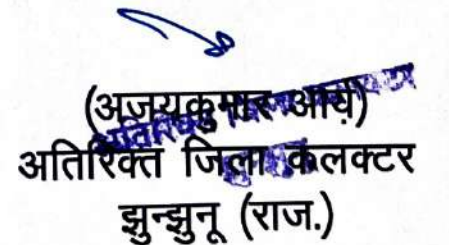 (अजयकुमार आर्य)
अतिरिक्त जिला कलक्टर
झुन्झुनू (राज.)